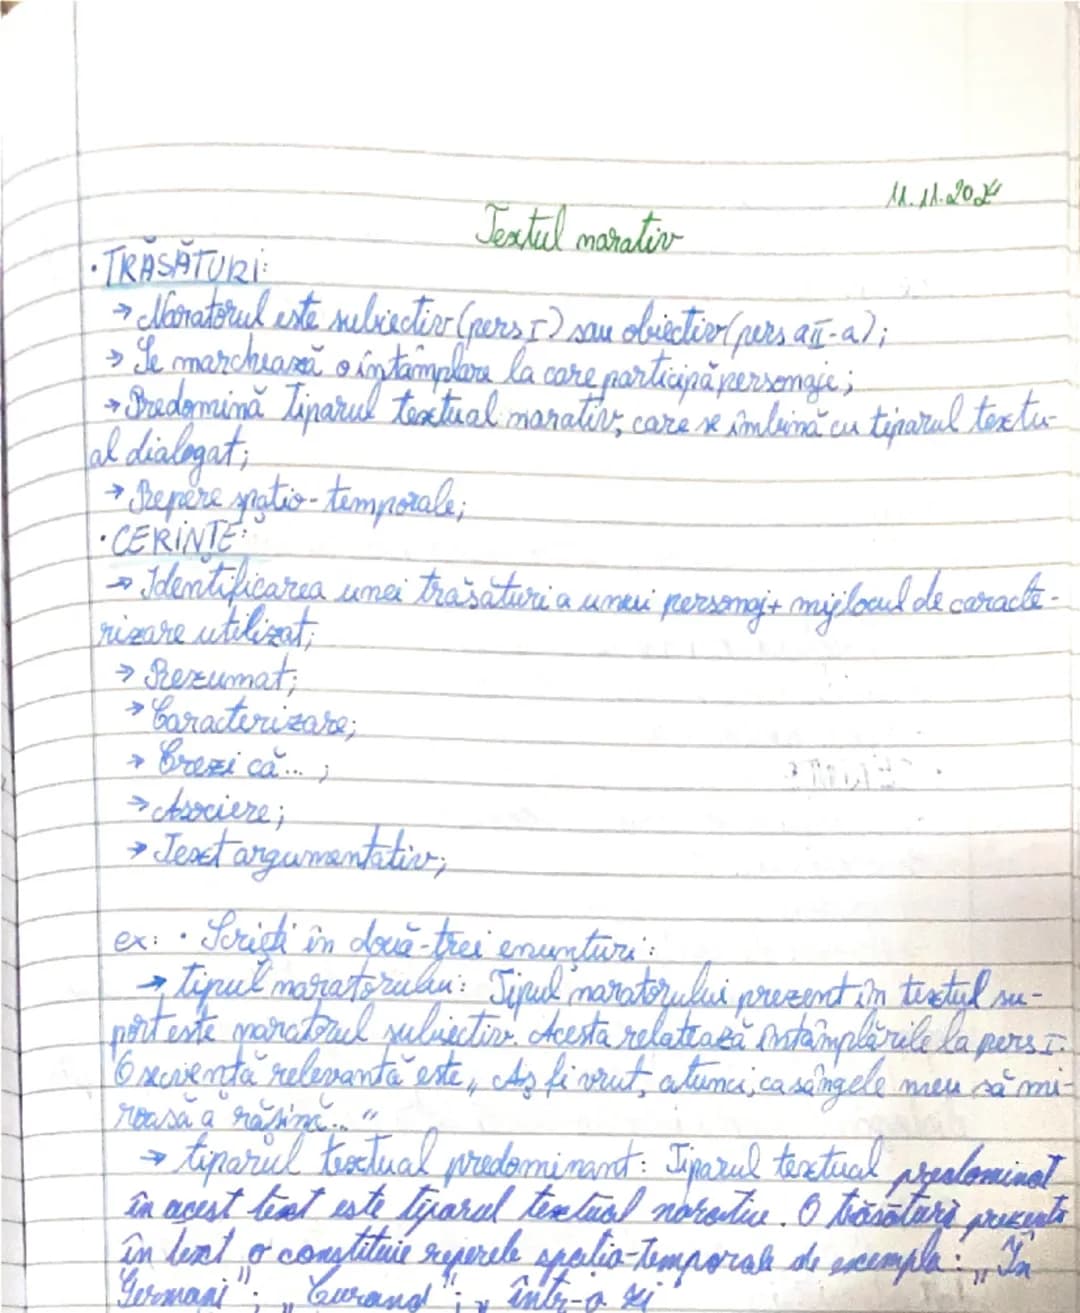 11.11.202
Textul narativ
• TRĂSĂTURI:
→ Naratorul este subiectiv (pers I) sau obiectiv (pers a II-a);
→ Se marchează o întâmplare la care participă personaje;
→ Predomină tiparul textual narativ, care se îmbină cu tiparul textu-
al dialogat;
→ Repere spatio-temporale;
• CERINȚE:
→ Identificarea unei trăsături a unui personaj + mijlocul de caracte-
rizare utilizat;
→ Rezumat;
→ Caracterizare;
→ Crezi că... ;
→ Asociere;
→ Text argumentativ;
ex: • Scrieți în două-trei enunțuri:
→ tipul naratorului: Tipul naratorului prezent în textul su-
port este naratorul subiectiv. Acesta relatează întâmplările la pers I.
O secvență relevantă este „Aș fi vrut, atunci, ca sângele meu să mi-
roasă a rășină..."
→ tiparul textual predominant: Tiparul textual predominat
în acest text este tiparul textual narativ. O trăsătură prezentă
în text o constituie reperele spatio-temporale de exemplu: „În
Germani"; „Curand"; „într-o zi"